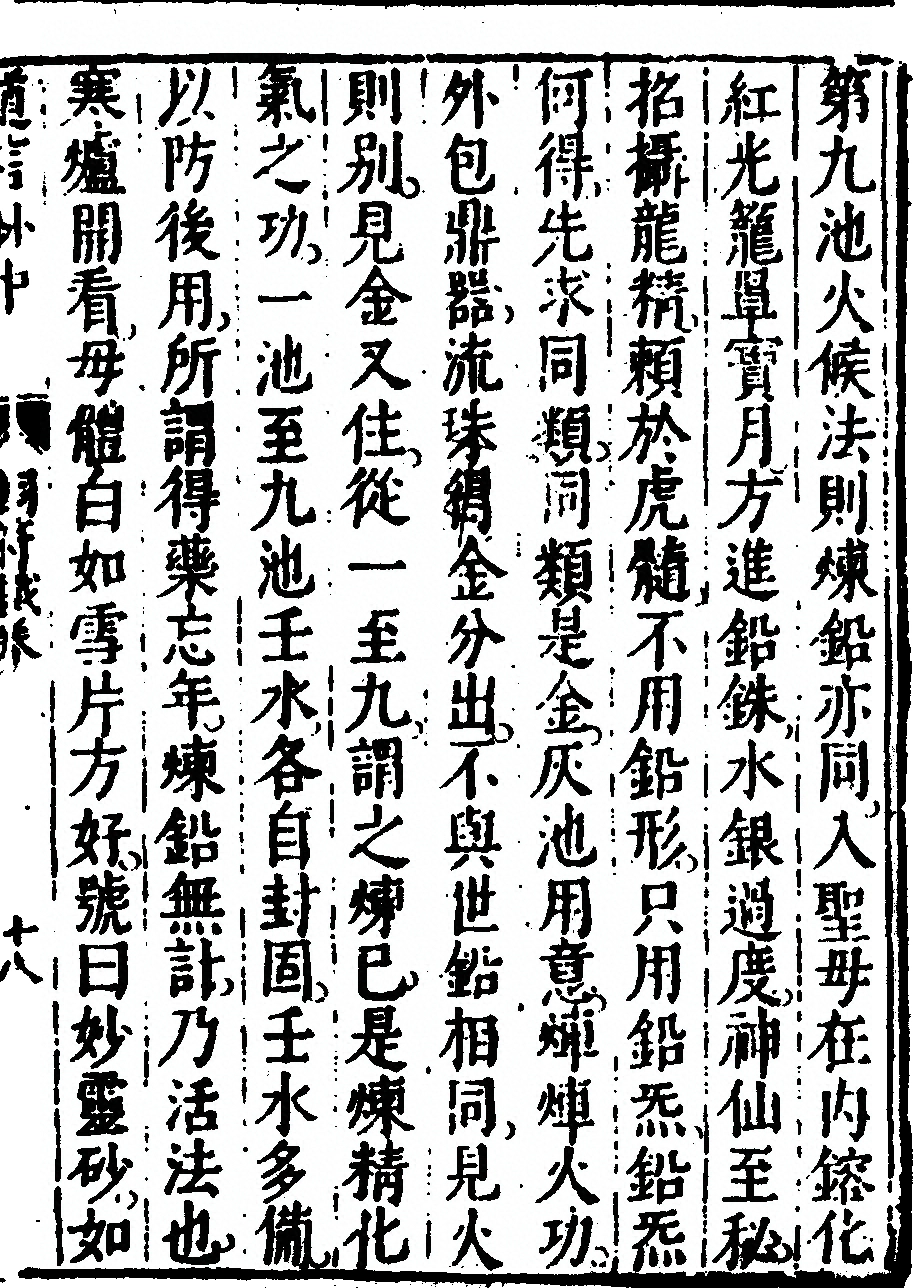 第九池火候法則煉鉛亦同入聖母在內鎔化
紅光籠罩寶月方進鉛銖水銀過度神仙至秘
招攝龍精賴於虎髓不用鉛形只用鉛炁鉛炁
何得先求同類同類是金灰池用意煇煇火功
外包鼎器流珠得金分出不與世鉛相同見火
則別見金又住從一至九謂之煉已是煉精化
氣之功一池至九池壬水各自封固壬水多備
以防後用所謂得藥忘年煉鉛無計乃活法也
寒爐開看母體白如雪片方好號曰妙靈砂如
十八